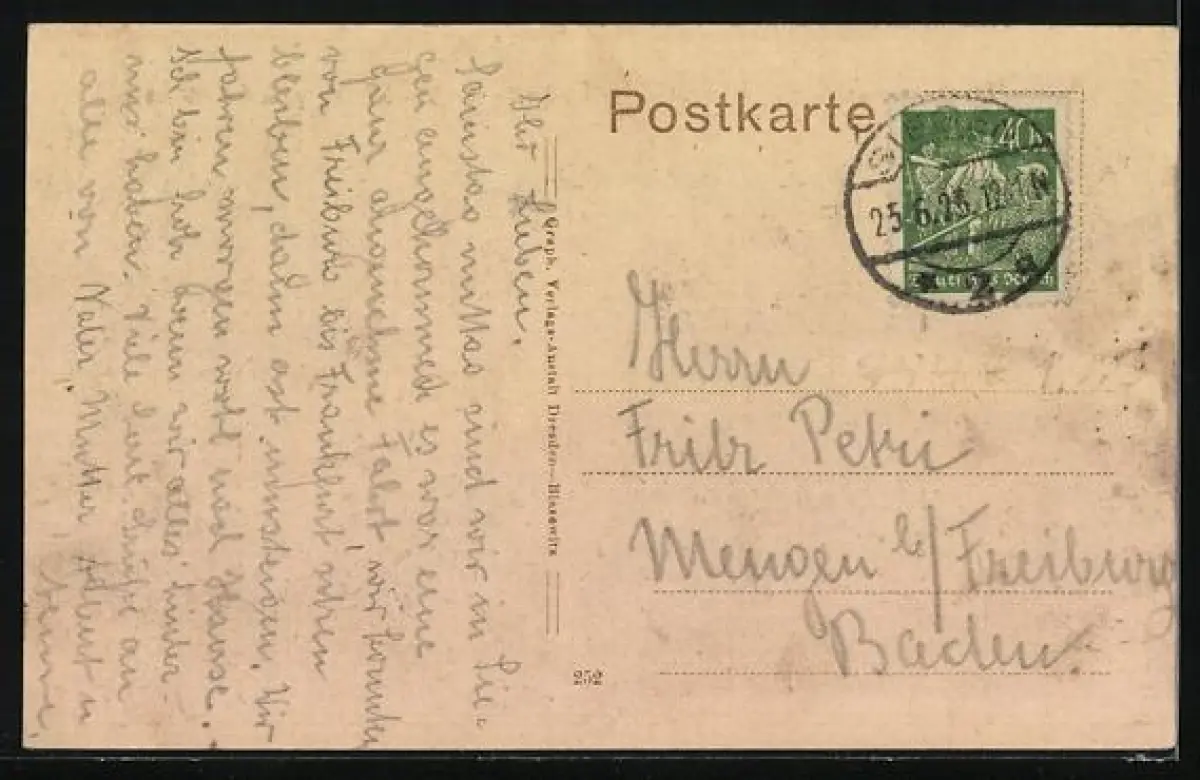 Postkarte
40
25.6.23. 12-1 N
Deutsches Reich
Ihr Lieben.
Samstag mittag sind wir in Sie-
gen angekommen es war eine
ganz angenehme Fahrt, wir konnten
von Freiburg bis Frankfurt sitzen
bleiben, dann erst umsteigen. Wir
fahren morgen wohl nach Hause.
Ich bin froh wenn wir alles hinter
uns haben. Viele herzl. Grüße an
alle von Vater Mutter Albert u
Graph. Verlags-Anstalt Dresden-Blasewitz
252
Herrn
Fritz Petri
Mengen b/Freiburg
Baden.